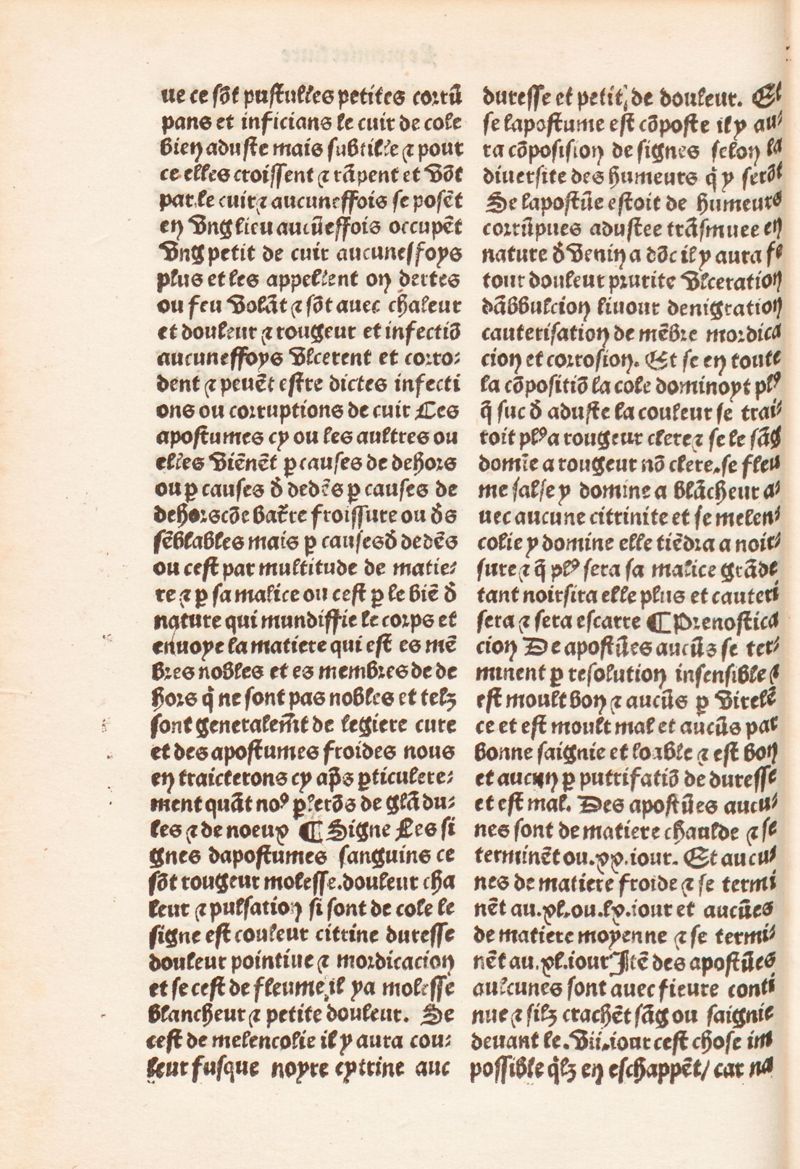 ue ce sõt pustulles petites corrũ
pans et inficians le cuir de cole
bien aduste mais subtille ⁊ pour
ce elles croissent ⁊ rãpent et võt
par le cuir ⁊ aucuneffois se posẽt
en vng lieu aucũeffois occupẽt
vng petit de cuir aucuneffoys
plus et les appellent on dertes
ou feu volãt ⁊ sõt auec chaleur
et douleur ⁊ rougeur et infectiõ
aucuneffoys vlcerent et corro⸗
dent ⁊ peuẽt estre dictes infecti
ons ou corruptions de cuir Les
apostumes cy ou les aultres ou
elles viẽnẽt ꝑ causes de dehors
ou ꝑ causes d̕ dedẽs ꝑ causes de
dehors cõe batr̃e froissure ou d̕s
sẽblables mais ꝑ causes d̕ dedẽs
ou cest par multitude de matie⸗
re ⁊ ꝑ sa malice ou cest ꝑ le biẽ d̕
nature qui mundiffie le corps et
enuoye la matiere qui est es mẽ
bres nobles et es membres de de
hors q̃ ne sont pas nobles et telz
sont generalem̃t de legiere cure
et des apostumes froides nous
en traicterons cy ap̃s ꝑticulere⸗
ment quãt noꝰ ꝑlerõs de glãdu⸗
les ⁊ de noeux ¶ Signe Les si
gnes dapostumes sanguins ce
sõt rougeur molesse.douleur cha
leur ⁊ pulsation si sont de cole le
signe est couleur citrine duresse
douleur pointiue ⁊ mordicacion
et se cest de fleume il ya molesse
blancheur ⁊ petite douleur. Se
cest de melencolie il y aura cou⸗
leur fusque noyre cytrine auc
duresse et petit de douleur. Et
se lapostume est cõposte il y au⸗
ra cõposision de signes selon la
diuersite des humeurs q̃ y serõt
Se lapostũe estoit de humeurs
corrũpues adustee trãsmuee en
nature d̕ venin a dõc il y aura fe
tour douleur prurite vlceration
dãbbulcion liuour denigration
cauterisation de mẽbre mordica
cion et corrosion. Et se en toute
la cõpositiõ la cole dominoyt plꝰ
q̃ suc d̕ aduste la couleur se trai⸗
toit plꝰ a rougeur clere ⁊ se le sãg
domĩe a rougeur nõ clere.se fleu
me salse y domine a blãcheur a⸗
uec aucune citrinite et se melen⸗
colie y domine elle tiẽdra a noir⸗
sure ⁊ q̃ plꝰ sera sa malice grãde
tant noirsira elle plus et cauteri
sera ⁊ sera escarre ¶ Prenostica
cion De apostũes aucũs se ter⸗
minent ꝑ resolution insensible ⁊
est moult bon ⁊ aucũs ꝑ virelẽ
ce et est moult mal et aucũs par
bonne saignie et loable ⁊ est bon
et aucun ꝑ putrifatiõ de duresse
et est mal. Des apostũes aucu⸗
nes sont de matiere chaulde ⁊ se
terminẽt ou.xx.iour. Et aucu⸗
nes de matiere froide ⁊ se termi
nẽt au.xl.ou.lx.iour et aucũes
de matiere moyenne ⁊ se termi⸗
nẽt au.xl.iour Itẽ des apostũes
aulcunes sont auec fieure conti
nue ⁊ silz crachẽt sãg ou saignie
deuant le.vii.iour cest chose im
possible q̃lz en eschappẽt/ car na